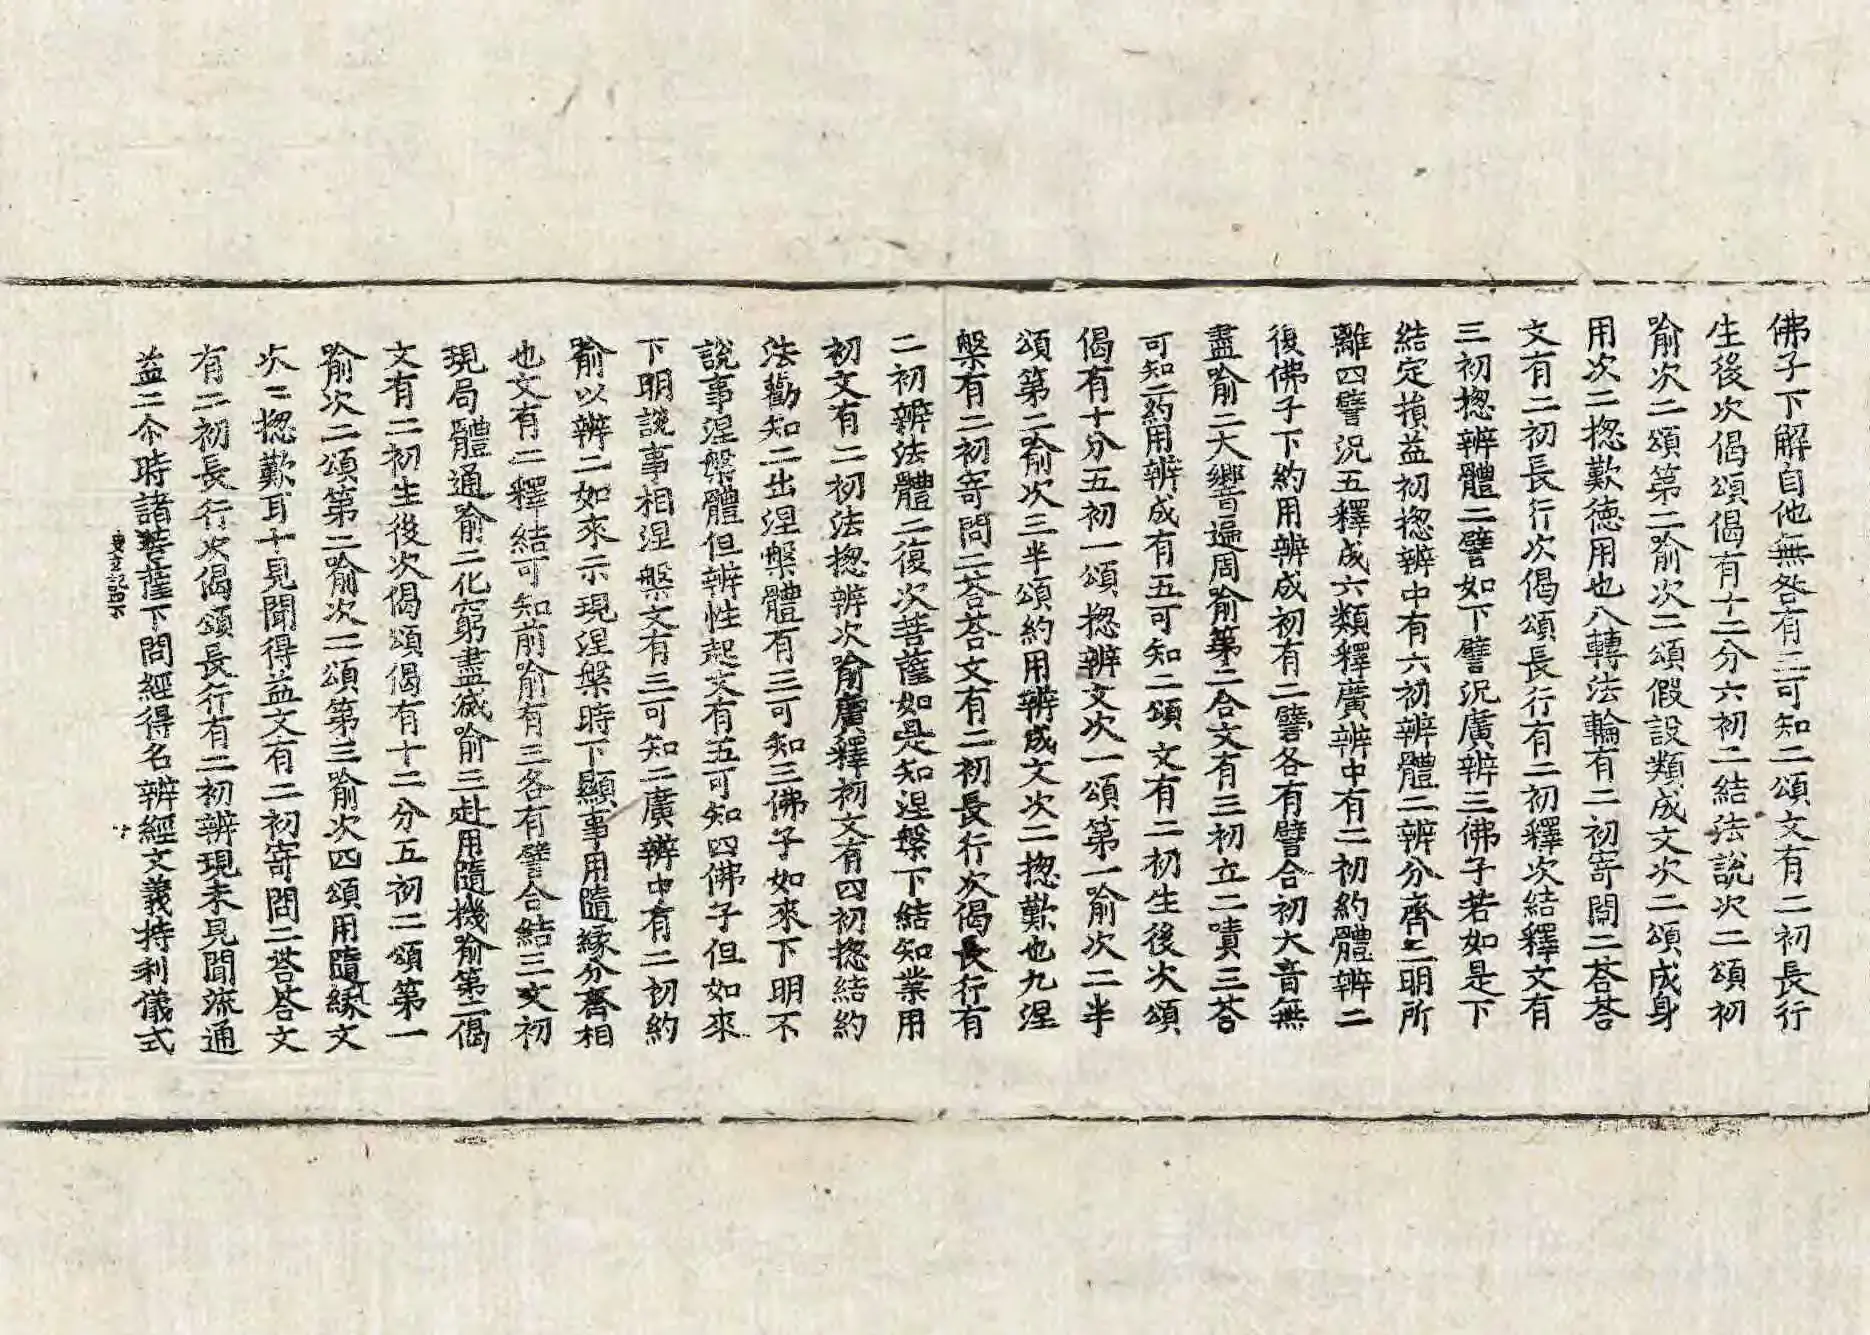 佛子下解自他無咎有三可知二頌文有二初長行
生後次偈頌偈有十二分六初二結法說次二頌初
喻次二頌第二喻次二頌假設類成文次二頌成身
用次二揔歎徳用也八轉法輪有二初寄問二荅荅
文有二初長行次偈頌長行有二初釋次結釋文有
三初揔辨體二譬如下譬況廣辨三佛子若如是下
結定損益初揔辨中有六初辨體二辨分齊三明所
離四譬況五釋成六類釋廣辨中有二初約體辨二
復佛子下約用辨成初有二譬各有譬合初大音無
盡喻二大響音遍周喻第二合文有三初立二嘖三荅
可知二約用辨成有五可知二頌文有二初生後次頌
偈有十分五初一頌揔辨文次一頌第一喻次二半
頌第二喻次三半頌約用辨成文次二揔歎也九涅
槃有二初寄問二荅荅文有二初長行次偈長行有
二初辨法體二復次菩薩如是知涅槃下結知業用
初文有二初法揔辨次喻廣釋初文有四初揔結約
法勸知二出涅槃體有三可知三佛子如來下明不
說事涅槃體但辨性起文有五可知四佛子但如來
下明說事相涅槃文有三可知二廣辨中有二初約
喻以辨二如來示現涅槃時下顯事用隨緣分齊相
也文有二釋結可知前喻有三各有譬合結三文初
現局體通喻二化窮盡滅喻三赴用隨機喻第二偈
文有二初生後次偈頌偈有十二分五初二頌第一
喻次二頌第二喻次二頌第三喻次四頌用隨緣文
次二揔歎耳十見聞得益文有二初寄問二荅荅文
有二初長行次偈頌長行有二初辨現未見聞流通
益二尒時諸菩薩下問經得名辨經文義持利儀式